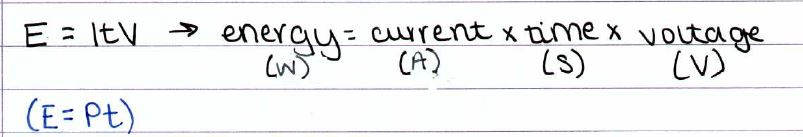 E = ItV → energy = current x time x voltage
(W) (A) (S) (V)
(E = Pt)